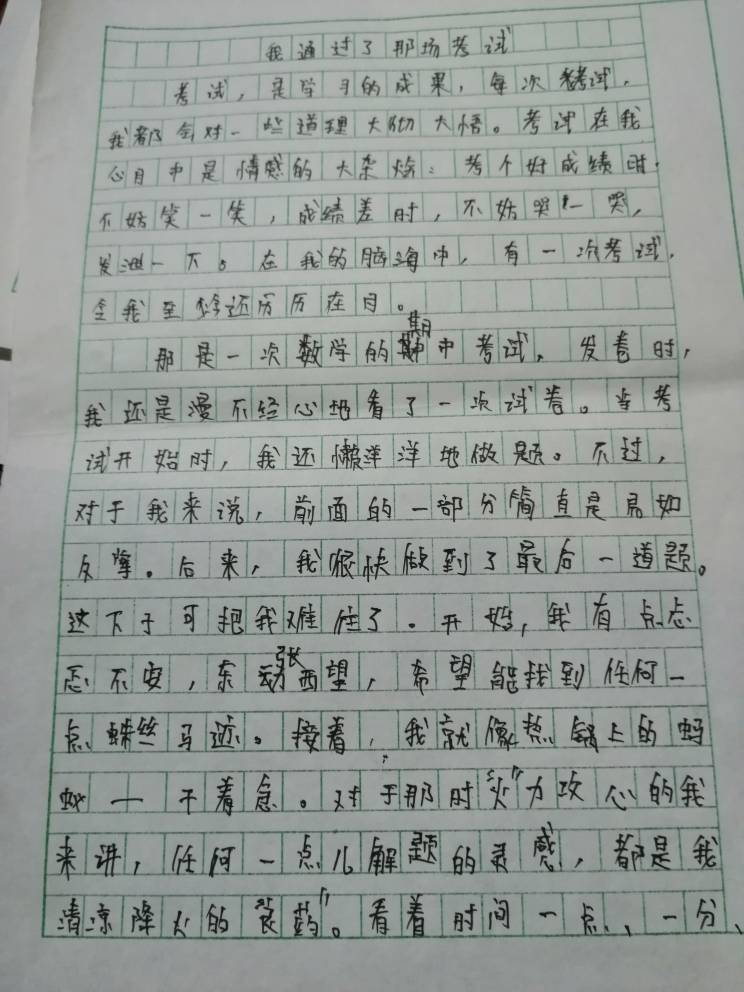 我通过了那场考试
考试，是学习的成果，每次考试，
我都会对一些道理大彻大悟。考试在我
心目中是情感的大杂烩：考个好成绩时，
不妨笑一笑，成绩差时，不妨哭一哭，
发泄一下。在我的脑海中，有一次考试，
令我至今还历历在目。
那是一次数学的期中考试，发卷时，
我还是漫不经心地看了一次试卷。当考
试开始时，我还懒洋洋地做题。不过，
对于我来说，前面的一部分简直是易如
反掌。后来，我很快做到了最后一道题。
这下子可把我难住了。开始，我有点忐
忑不安，东张西望，希望能找到任何一
点蛛丝马迹。接着，我就像热锅上的蚂
蚁——干着急。对于那时“火”力攻心的我
来讲，任何一点儿解题的灵感，都是我
清凉降火的“药”。看着时间一点、一分、